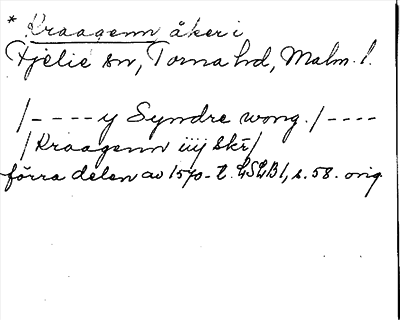 * Kraagenn åker i
Fjelie sn, Torna hd, Malm. l.
/----y Syndre wong./----
/Kraagenn iiij skr/
förra delen av 1570-t. LSLB1, s. 58. orig